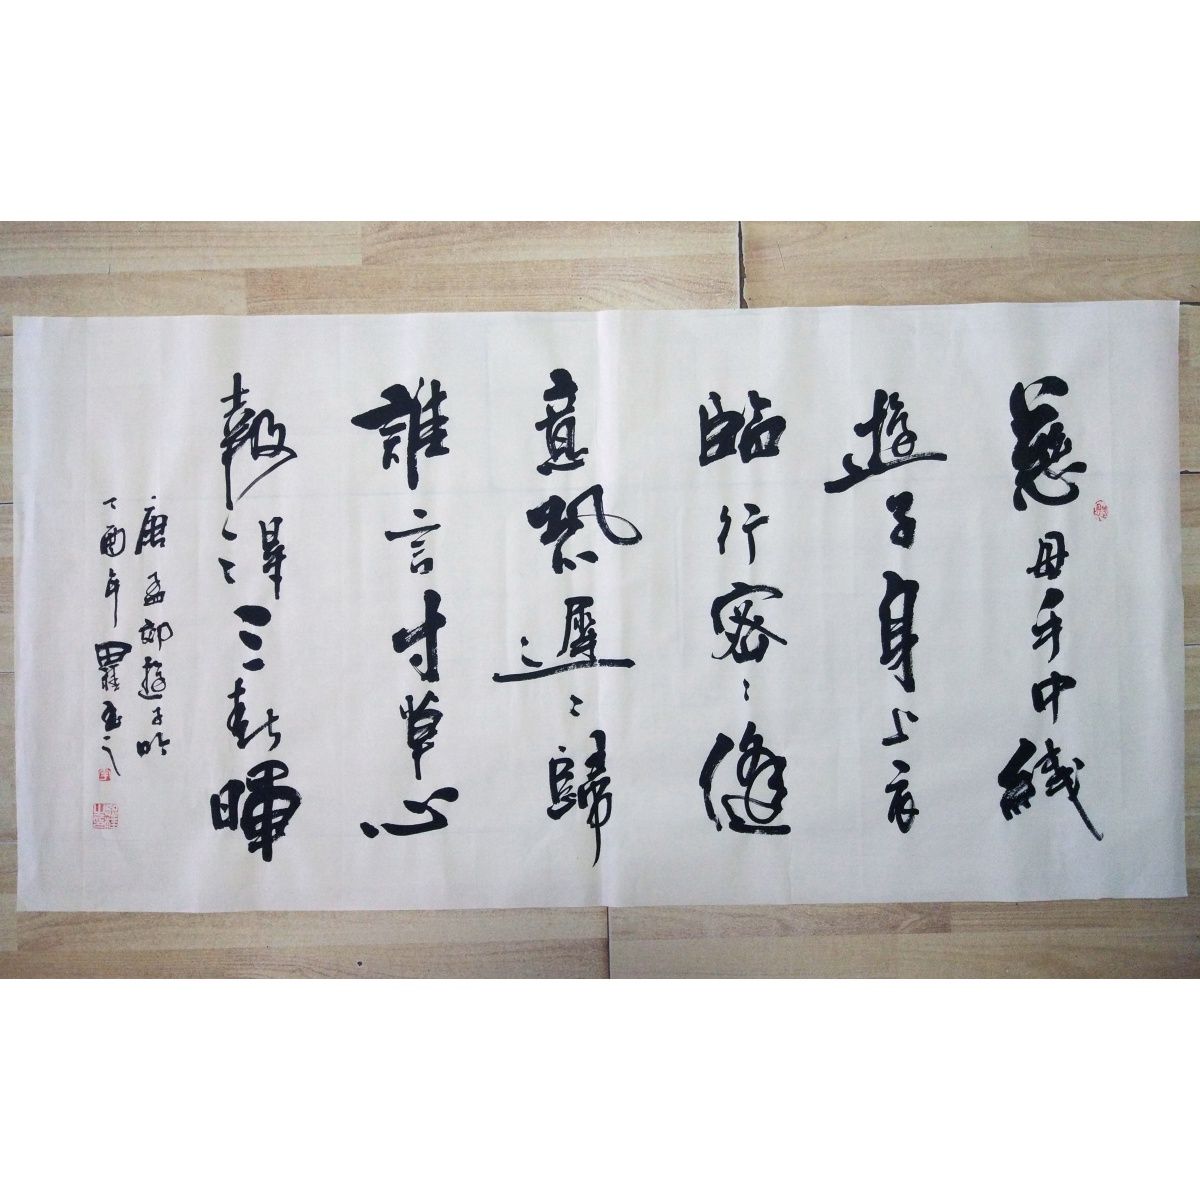 慈母手中綫
遊子身上衣
臨行密〻縫
意恐遲〻歸
誰言寸草心
報得三春暉
唐孟郊遊子吟
丁酉年羅